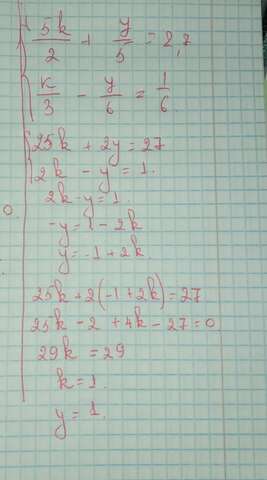 5k/2 + y/5 = 2,7
k/3 - y/6 = 1/6
25k + 2y = 27
2k - y = 1.
2k - y = 1
-y = 1 - 2k
y = -1 + 2k.
25k + 2(-1 + 2k) = 27
25k - 2 + 4k - 27 = 0
29k = 29
k = 1.
y = 1.